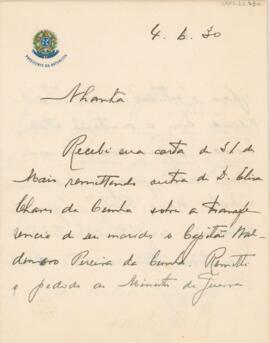 4.6.30
PRESIDENTE DA REPUBLICA
Recebi sua carta de 31 de
Maio remettendo outra de D. Elisa
Chaves da Cunha sobre a transfe-
rencia de seu marido o Capitão Wal-
demaro Pereira da Cunha. Remetti
o pedido ao Ministro da Guerra